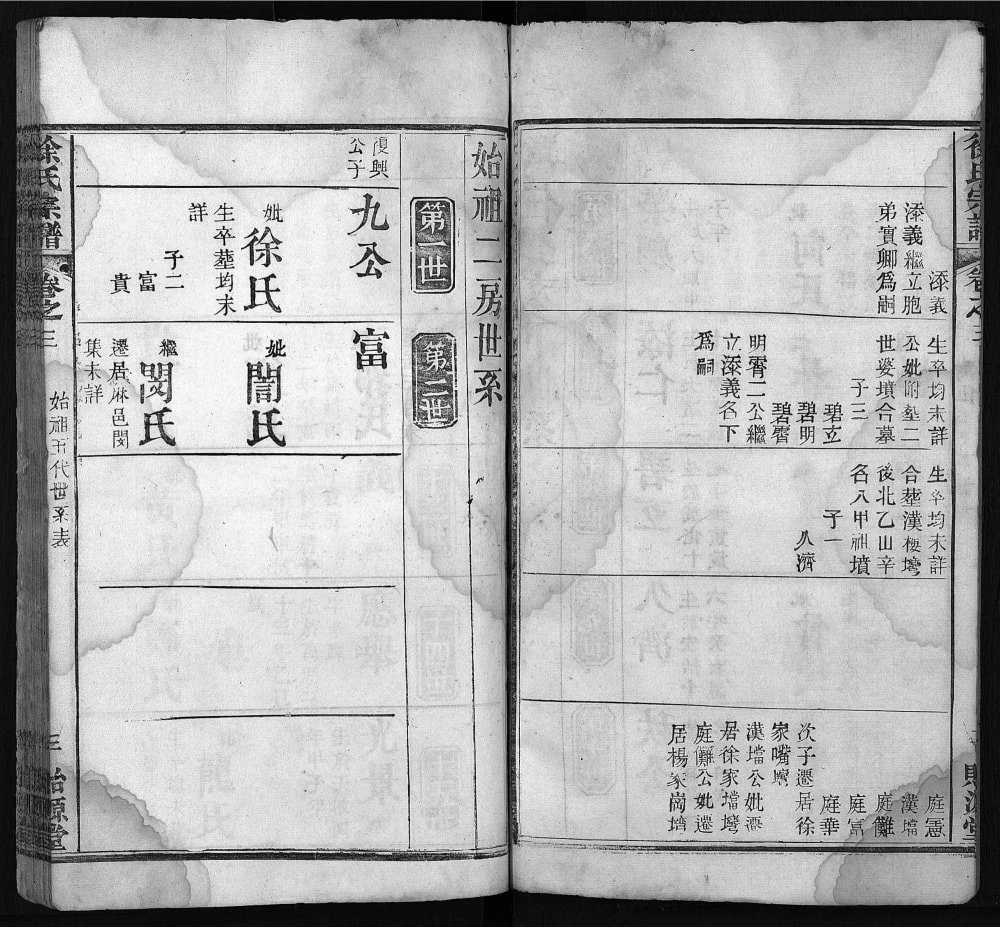 徐氏宗譜
卷之三
添義
添義繼立胞
弟實卿爲嗣
生卒均未詳
公妣附塟二
世婆墳合墓
子三
碧立
碧明
碧霄
明霄二公繼
立添義名下
爲嗣
生卒均未詳
合塟漢樓塆
後北乙山辛
名八甲祖墳
子一
久濟
庭憲
漢壋
庭儺
庭富
庭華
次子遷居徐
家嘴塆
漢壋公妣遷
居徐家壋塆
庭儺公妣遷
居楊家崗塆
始祖二房世系
第一世
第二世
復興
公子
九公
妣徐氏
生卒塟均未
詳
子二
富
貴
富
妣誾氏
繼閔氏
遷居麻邑閔
集未詳
徐氏宗譜
卷之三
始祖五代世系表
三
治源堂